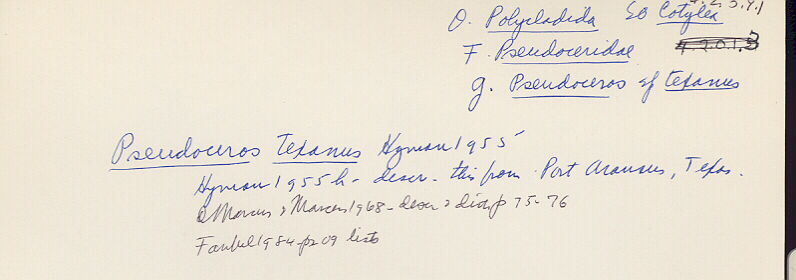 O. Polycladida SO Cotylea
F. Pseudoceridae
g. Pseudoceros sp texanus
Pseudoceros Texanus Hyman 1955
Hyman 1955 h - descr - this from Port Aransas, Texas.
Marcus & Marcus 1968 - descr & dist p 75-76
Faubel 1984 - p 209 lists